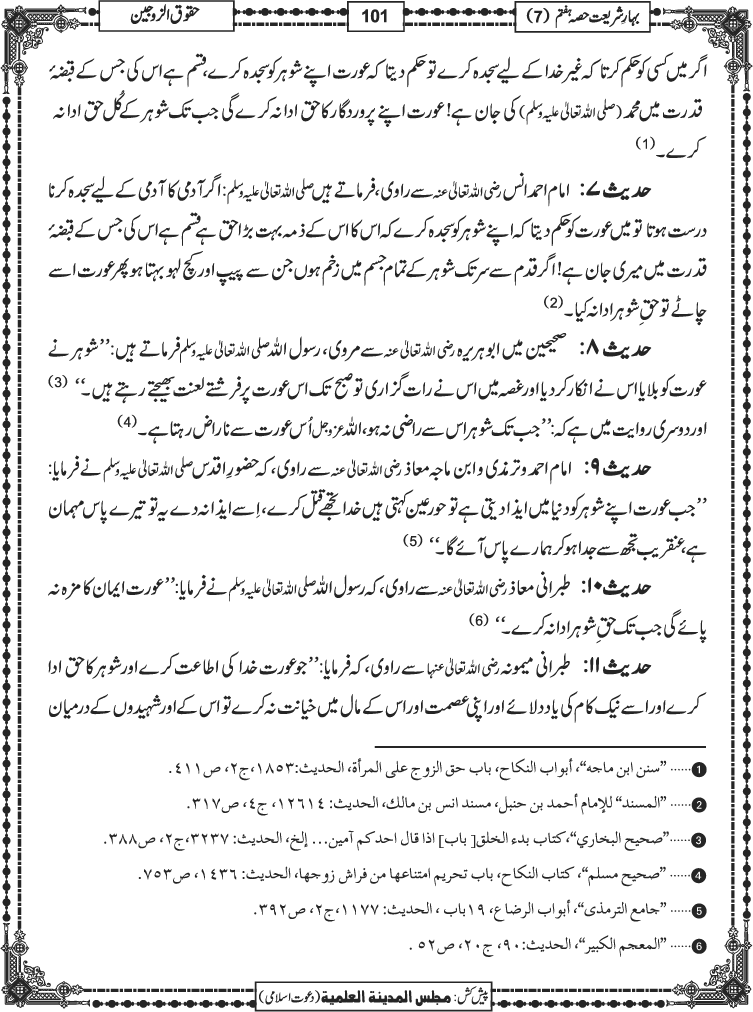 بہارِ شریعت حصہ ہفتم (7)
101
حقوق الزوجین
اگر میں کسی کو حکم کرتا کہ غیر خدا کے لیے سجدہ کرے تو حکم دیتا کہ عورت اپنے شوہر کو سجدہ کرے، قسم ہے اس کی جس کے قبضۂ
قدرت میں محمد (صلی اللہ تعالیٰ علیہ وسلم) کی جان ہے! عورت اپنے پروردگار کا حق ادا نہ کرے گی جب تک شوہر کے کُل حق ادا نہ
کرے۔ (1)
حدیث ۷: امام احمد انس رضی اللہ تعالیٰ عنہ سے راوی، فرماتے ہیں صلی اللہ تعالیٰ علیہ وسلم: اگر آدمی کا آدمی کے لیے سجدہ کرنا
درست ہوتا تو میں عورت کو حکم دیتا کہ اپنے شوہر کو سجدہ کرے کہ اس کا اس کے ذمہ بہت بڑا حق ہے قسم ہے اس کی جس کے قبضۂ
قدرت میں میری جان ہے! اگر قدم سے سر تک شوہر کے تمام جسم میں زخم ہوں جن سے پیپ اور کچ لہو بہتا ہو پھر عورت اسے
چاٹے تو حقِ شوہر ادا نہ کیا۔ (2)
حدیث ۸: صحیحین میں ابوہریرہ رضی اللہ تعالیٰ عنہ سے مروی، رسول اللہ صلی اللہ تعالیٰ علیہ وسلم فرماتے ہیں: ’’شوہر نے
عورت کو بلایا اس نے انکار کر دیا اور غصہ میں اس نے رات گزاری تو صبح تک اس عورت پر فرشتے لعنت بھیجتے رہتے ہیں۔‘‘ (3)
اور دوسری روایت میں ہے کہ: ’’جب تک شوہر اس سے راضی نہ ہو، اللہ عزوجل اُس عورت سے ناراض رہتا ہے۔ (4)
حدیث ۹: امام احمد و ترمذی و ابن ماجہ معاذ رضی اللہ تعالیٰ عنہ سے راوی، کہ حضورِ اقدس صلی اللہ تعالیٰ علیہ وسلم نے فرمایا:
’’جب عورت اپنے شوہر کو دنیا میں ایذا دیتی ہے تو حورعین کہتی ہیں خدا تجھے قتل کرے، اِسے ایذا نہ دے یہ تو تیرے پاس مہمان
ہے، عنقریب تجھ سے جدا ہو کر ہمارے پاس آئے گا۔‘‘ (5)
حدیث ۱۰: طبرانی معاذ رضی اللہ تعالیٰ عنہ سے راوی، کہ رسول اللہ صلی اللہ تعالیٰ علیہ وسلم نے فرمایا: ’’عورت ایمان کا مزہ نہ
پائے گی جب تک حقِ شوہر ادا نہ کرے۔‘‘ (6)
حدیث ۱۱: طبرانی میمونہ رضی اللہ تعالیٰ عنہا سے راوی، کہ فرمایا: ’’جو عورت خدا کی اطاعت کرے اور شوہر کا حق ادا
کرے اور اسے نیک کام کی یاد دلائے اور اپنی عصمت اور اس کے مال میں خیانت نہ کرے تو اس کے اور شہیدوں کے درمیان
1 ...... ”سنن ابن ماجہ“، أبواب النکاح، باب حق الزوج علی المرأة، الحدیث: ۱۸۵۳، ج۲، ص۴۱۱.
2 ...... ”المسند“ للإمام أحمد بن حنبل، مسند انس بن مالک، الحدیث: ۱۲۶۱۴، ج۴، ص۳۱۷.
3 ...... ”صحیح البخاري“، کتاب بدء الخلق[ باب] اذا قال احدکم آمین... إلخ، الحدیث: ۳۲۳۷، ج۲، ص۳۸۸.
4 ...... ”صحیح مسلم“، کتاب النکاح، باب تحریم امتناعها من فراش زوجها، الحدیث: ۱۴۳۶، ص۷۵۳.
5 ...... ”جامع الترمذی“، أبواب الرضاع، ۱۹باب ، الحدیث: ۱۱۷۷، ج۲، ص۳۹۲.
6 ...... ”المعجم الکبیر“، الحدیث: ۹۰، ج۲۰، ص۵۲ .
پیش کش: مجلس المدینة العلمیة (دعوت اسلامی)